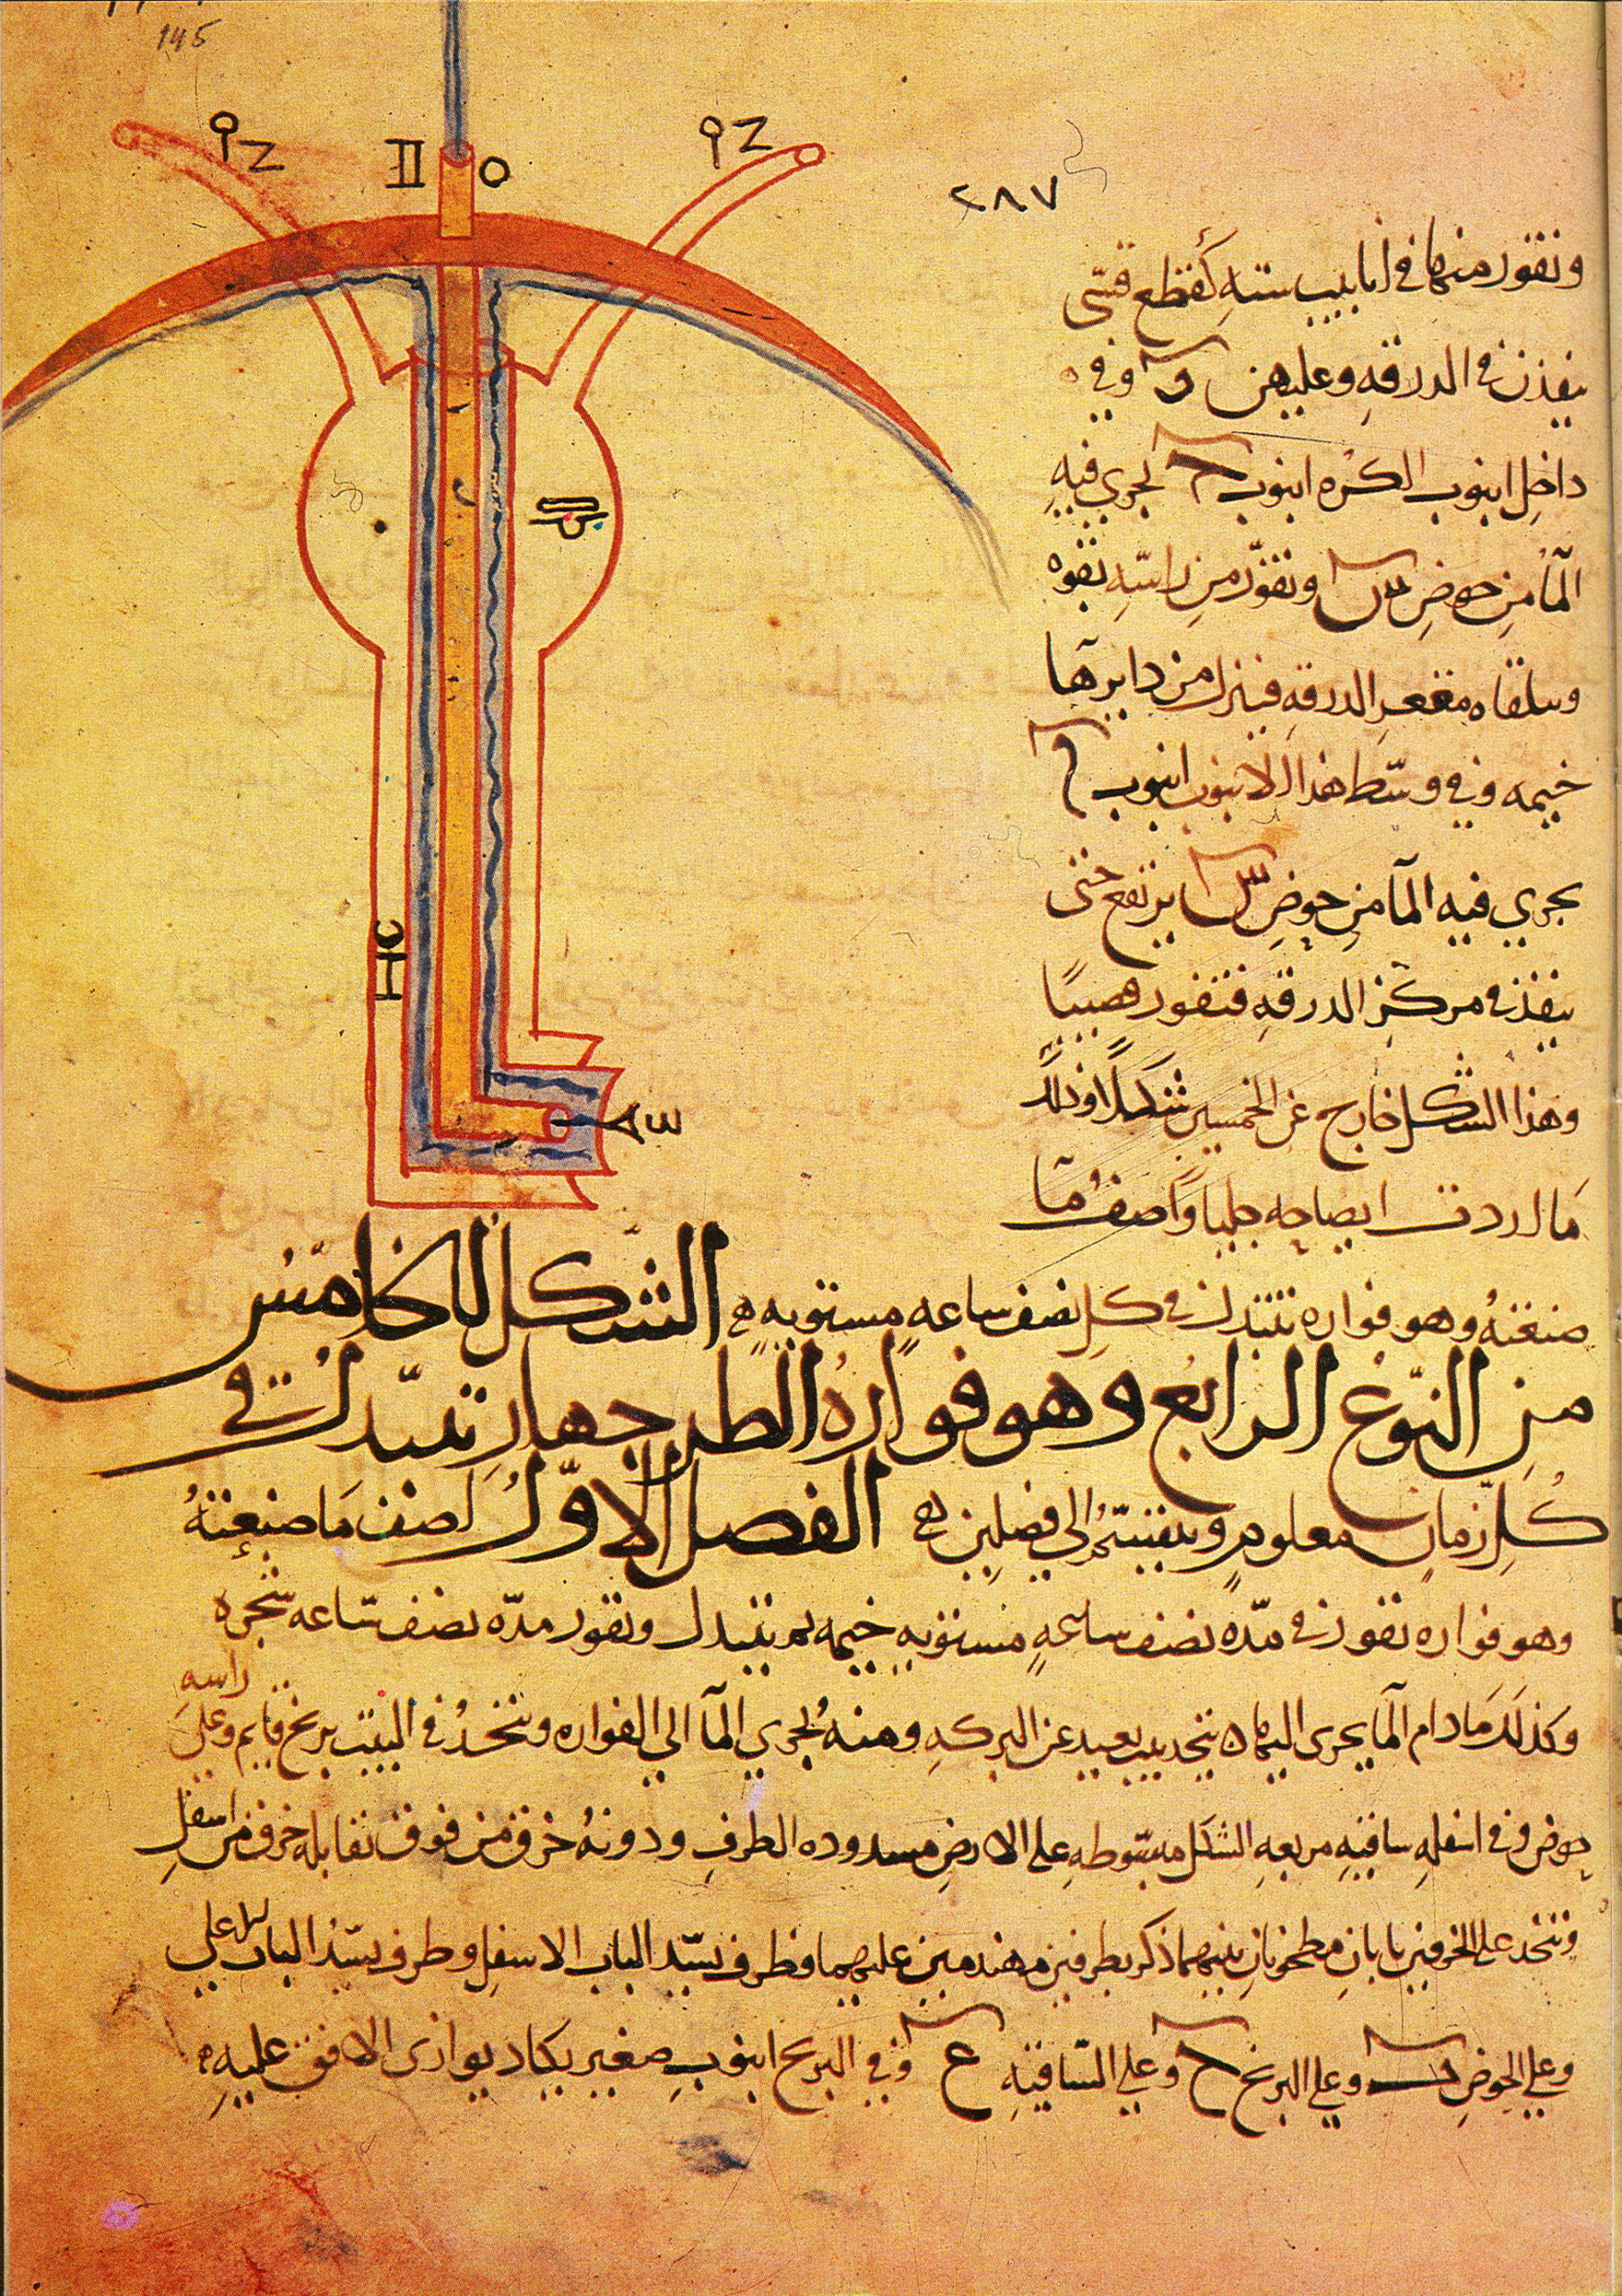 145
٢٨٧
وتفور منها في انابيب ستة كقطع قسي
ينفذن في الدرقه وعليهن و وفي
داخل انبوب الكره انبوب ح يجري فيه
المآ من حوض س وتفور من راسه بقوه
ويلقاه مقعر الدرقه فينزل من دايرها
خيمه وفي وسط هذا الانبوب انبوب م
يجري فيه المآ من حوض يرتفع حتى
ينفذ في مركز الدرقه فتفور قضيبا
وهذا الشكل خارج عن الخمسين شكلا وذلك
ما اردت ايضاحه جليا واصف ما
صنعته وهو فواره تتبدل في كل نصف ساعه مستويه الشكل الخامس
من النوع الرابع وهو فواره الطرجهار تتبدل في
كل زمان معلوم وينقسم الى فصلين الفصل الاول اصف ما صنعته
وهو فواره تفور في مده نصف ساعه مستويه خيمه ثم تتبدل وتفور مده نصف ساعه شجره
وكذلك ما دام المآ يجري اليها يتخذ بيت بعيد عن البركه ومنه يجري المآ الى الفواره ويتخذ في البيت بربخ قايم وعلى راسه
حوض وفي اسفله ساقيه مربعه الشكل مبسوطه على الارض مسدوده الطرف ودونه خرق من فوق تقابله خرق من اسفل
ويتخذ على الخرقين بابان مطحونان بينهما ذكر بطرفين مهندمين عليهما فطرف يسد الباب الاسفل وطرف يسد الباب الاعلى
وعلى الحوض وعلى البربخ ح وعلى الساقيه ع وفي البربخ انبوب صغير يكاد يوازى الافق عليه ه